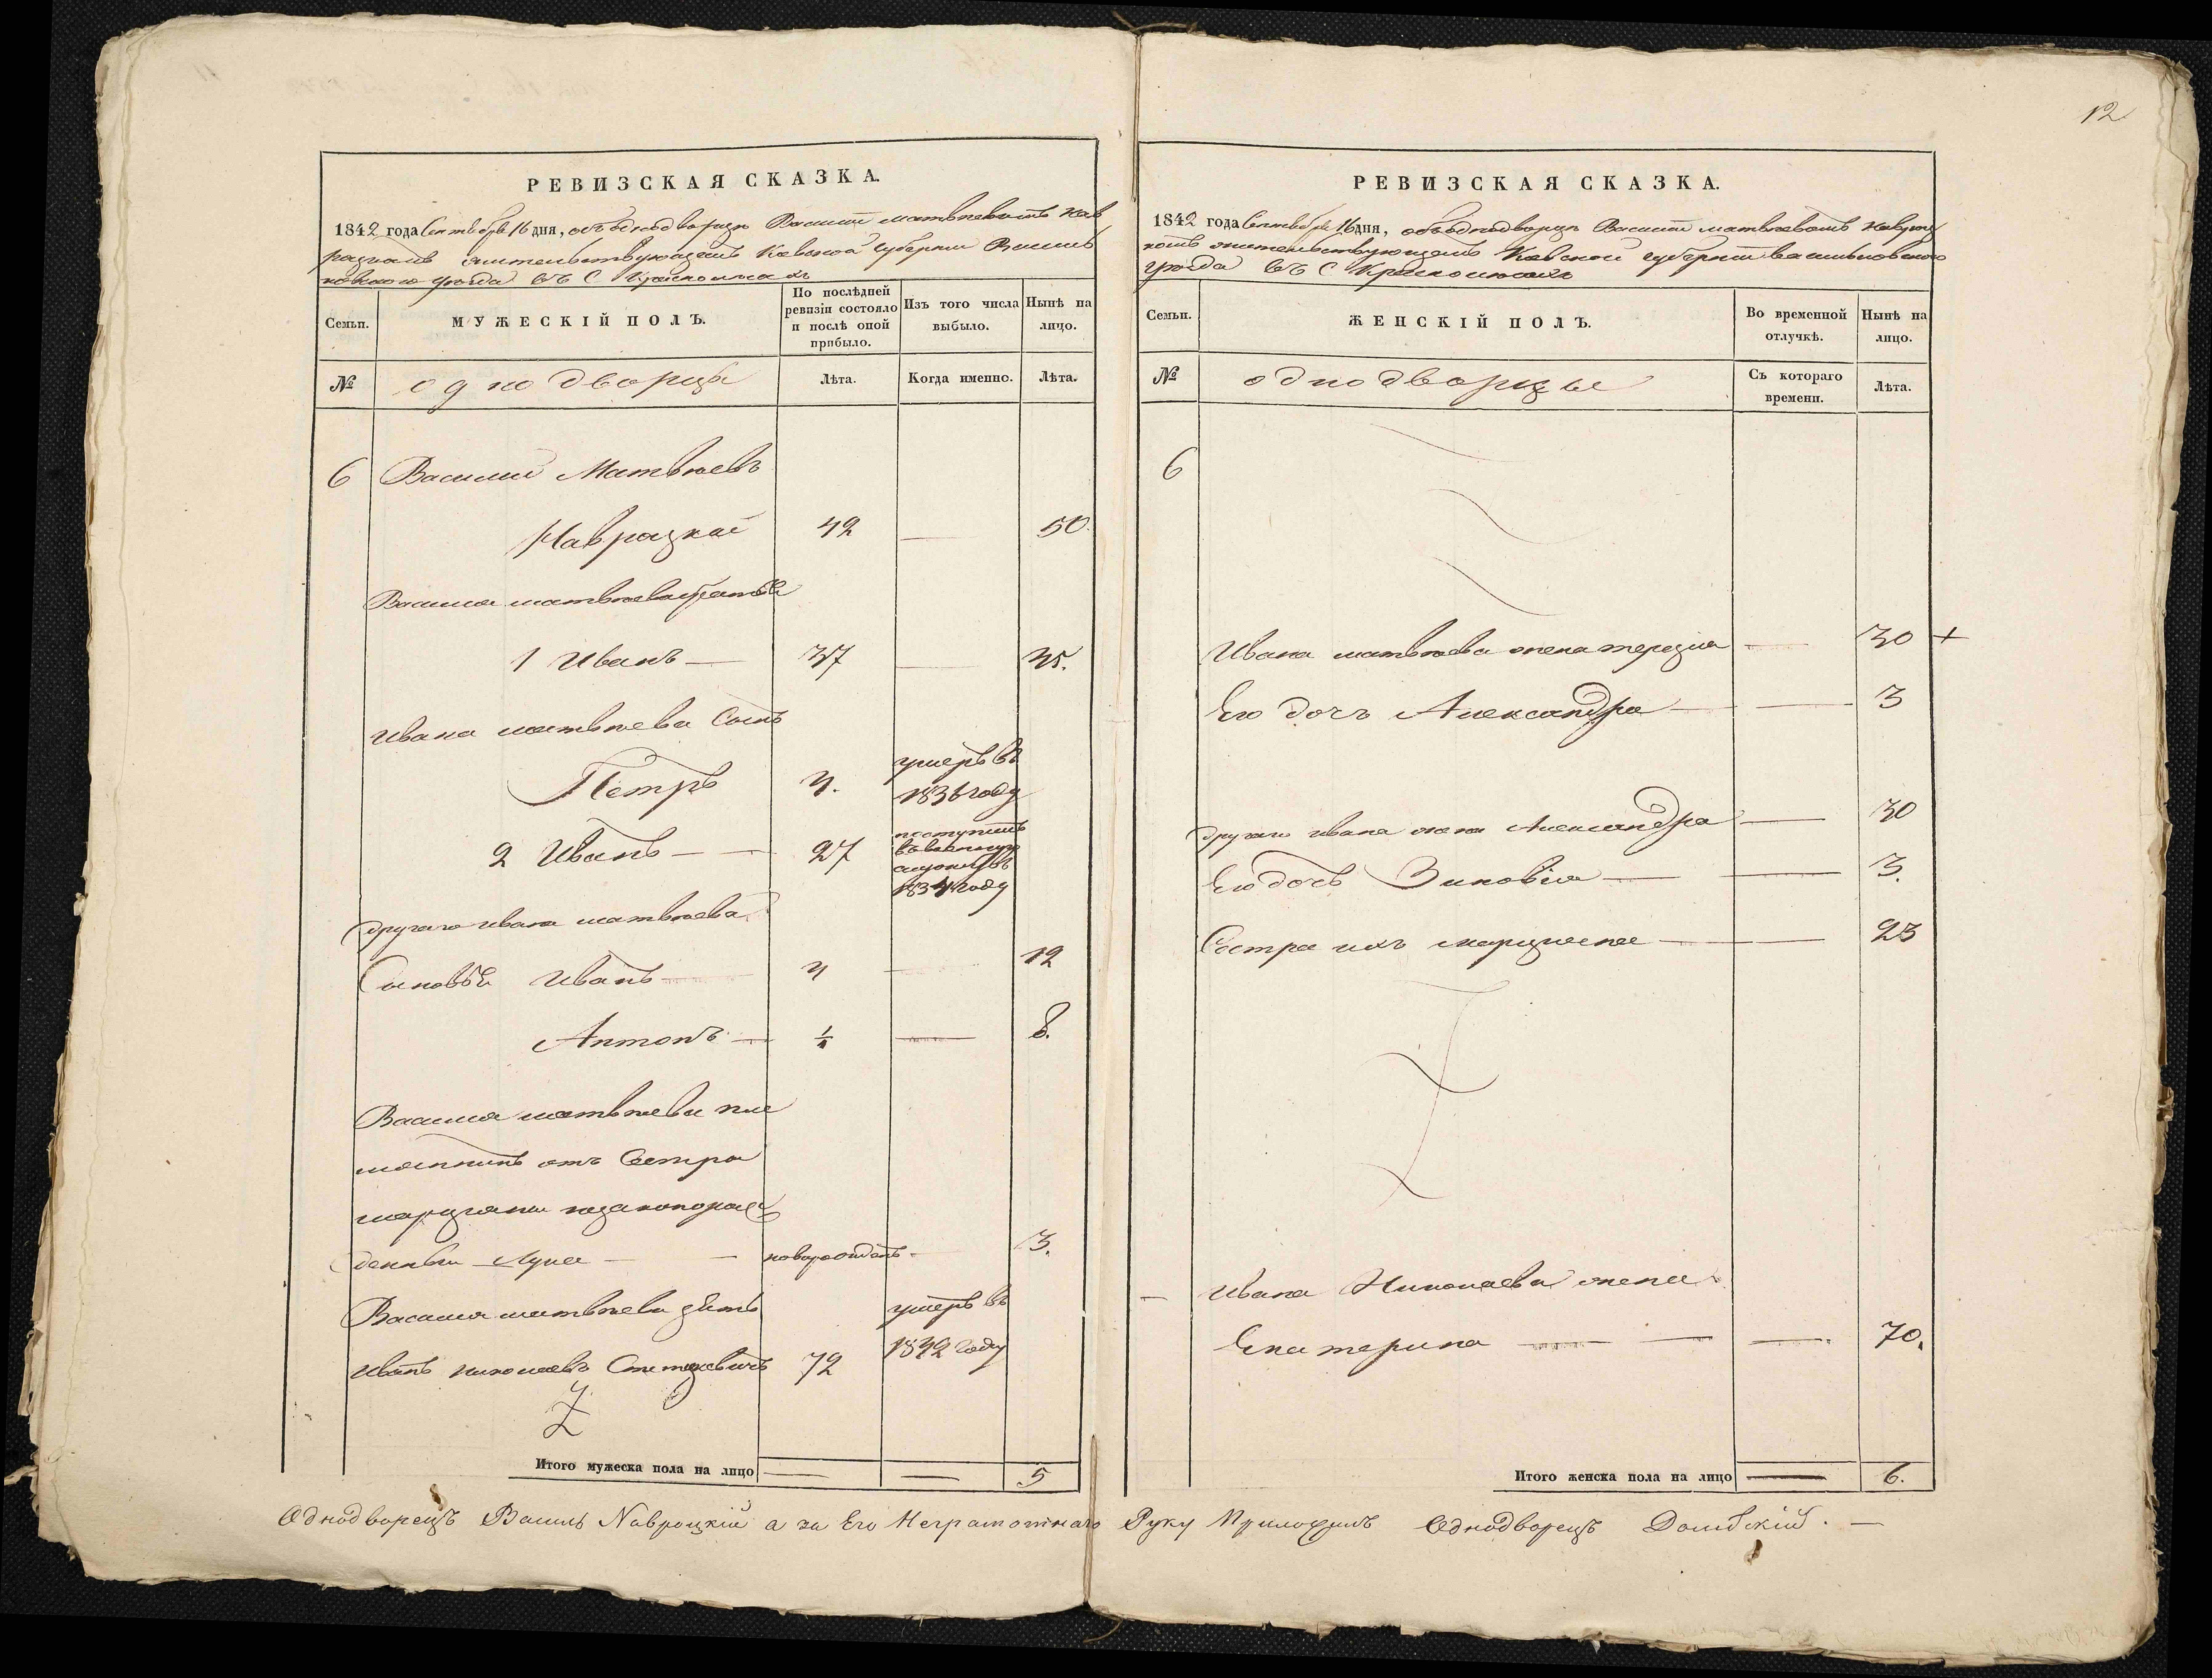 12
РЕВИЗСКАЯ СКАЗКА.
1842 года Сентября 16 дня, объ однодворцѣ Василiи Матвѣевѣ Нав
роцкомъ жительствующемъ Кіевской Губерніи Василь
ковского уѣзда въ С
Семьи.
МУЖЕСКІЙ ПОЛЪ.
По послѣдней ревизіи состояло и послѣ оной прибыло.
Изъ того числа выбыло.
Нынѣ на лицо.
№
однодворцы
Лѣта.
Когда именно.
Лѣта.
6 Василий Матвѣевъ
Навроцкий 42 — 50.
Василия Матвѣева братья
1 Иванъ — 37 — 45.
Ивана Матвѣева Сынъ
Петръ 4. умеръ въ 1836 году
2 Иванъ — — 27 поступилъ въ военную службу въ 1834 году
Другаго Ивана Матвѣева
Сыновья Иванъ 4 — 12
Антонъ — ¼ — 8.
Василия Матвѣева пле
мянникъ отъ Сестры
Марцыяны незаконорож
денный — Лука — — новорожденъ 3.
Василия Матвѣева зять
Иванъ Николаевъ 72 умеръ въ 1842 году
Итого мужеска пола на лицо — — 5
РЕВИЗСКАЯ СКАЗКА.
1842 года Сентября 16 дня, объ однодворцѣ Василiи Матвѣевѣ Навроц
комъ жительствующемъ Кіевской Губерніи Васильковского
уѣзда въ С
Семьи.
ЖЕНСКІЙ ПОЛЪ.
Во временной отлучкѣ.
Нынѣ на лицо.
№
однодворцы
Съ котораго времени.
Лѣта.
6
Ивана Матвѣева жена Терезия — 30 +
Его дочь Александра — — 3
Другаго Ивана жена Александра — 30
Его дочь Зиновія — — 3.
Сестра ихъ Марцыяна — — 23
— Ивана Николаева жена
Екатерина — — — 70.
Итого женска пола на лицо — 6.
Однодворецъ Василь Навроцкій а за Его Неграмотнаго Руку Приложилъ Однодворецъ